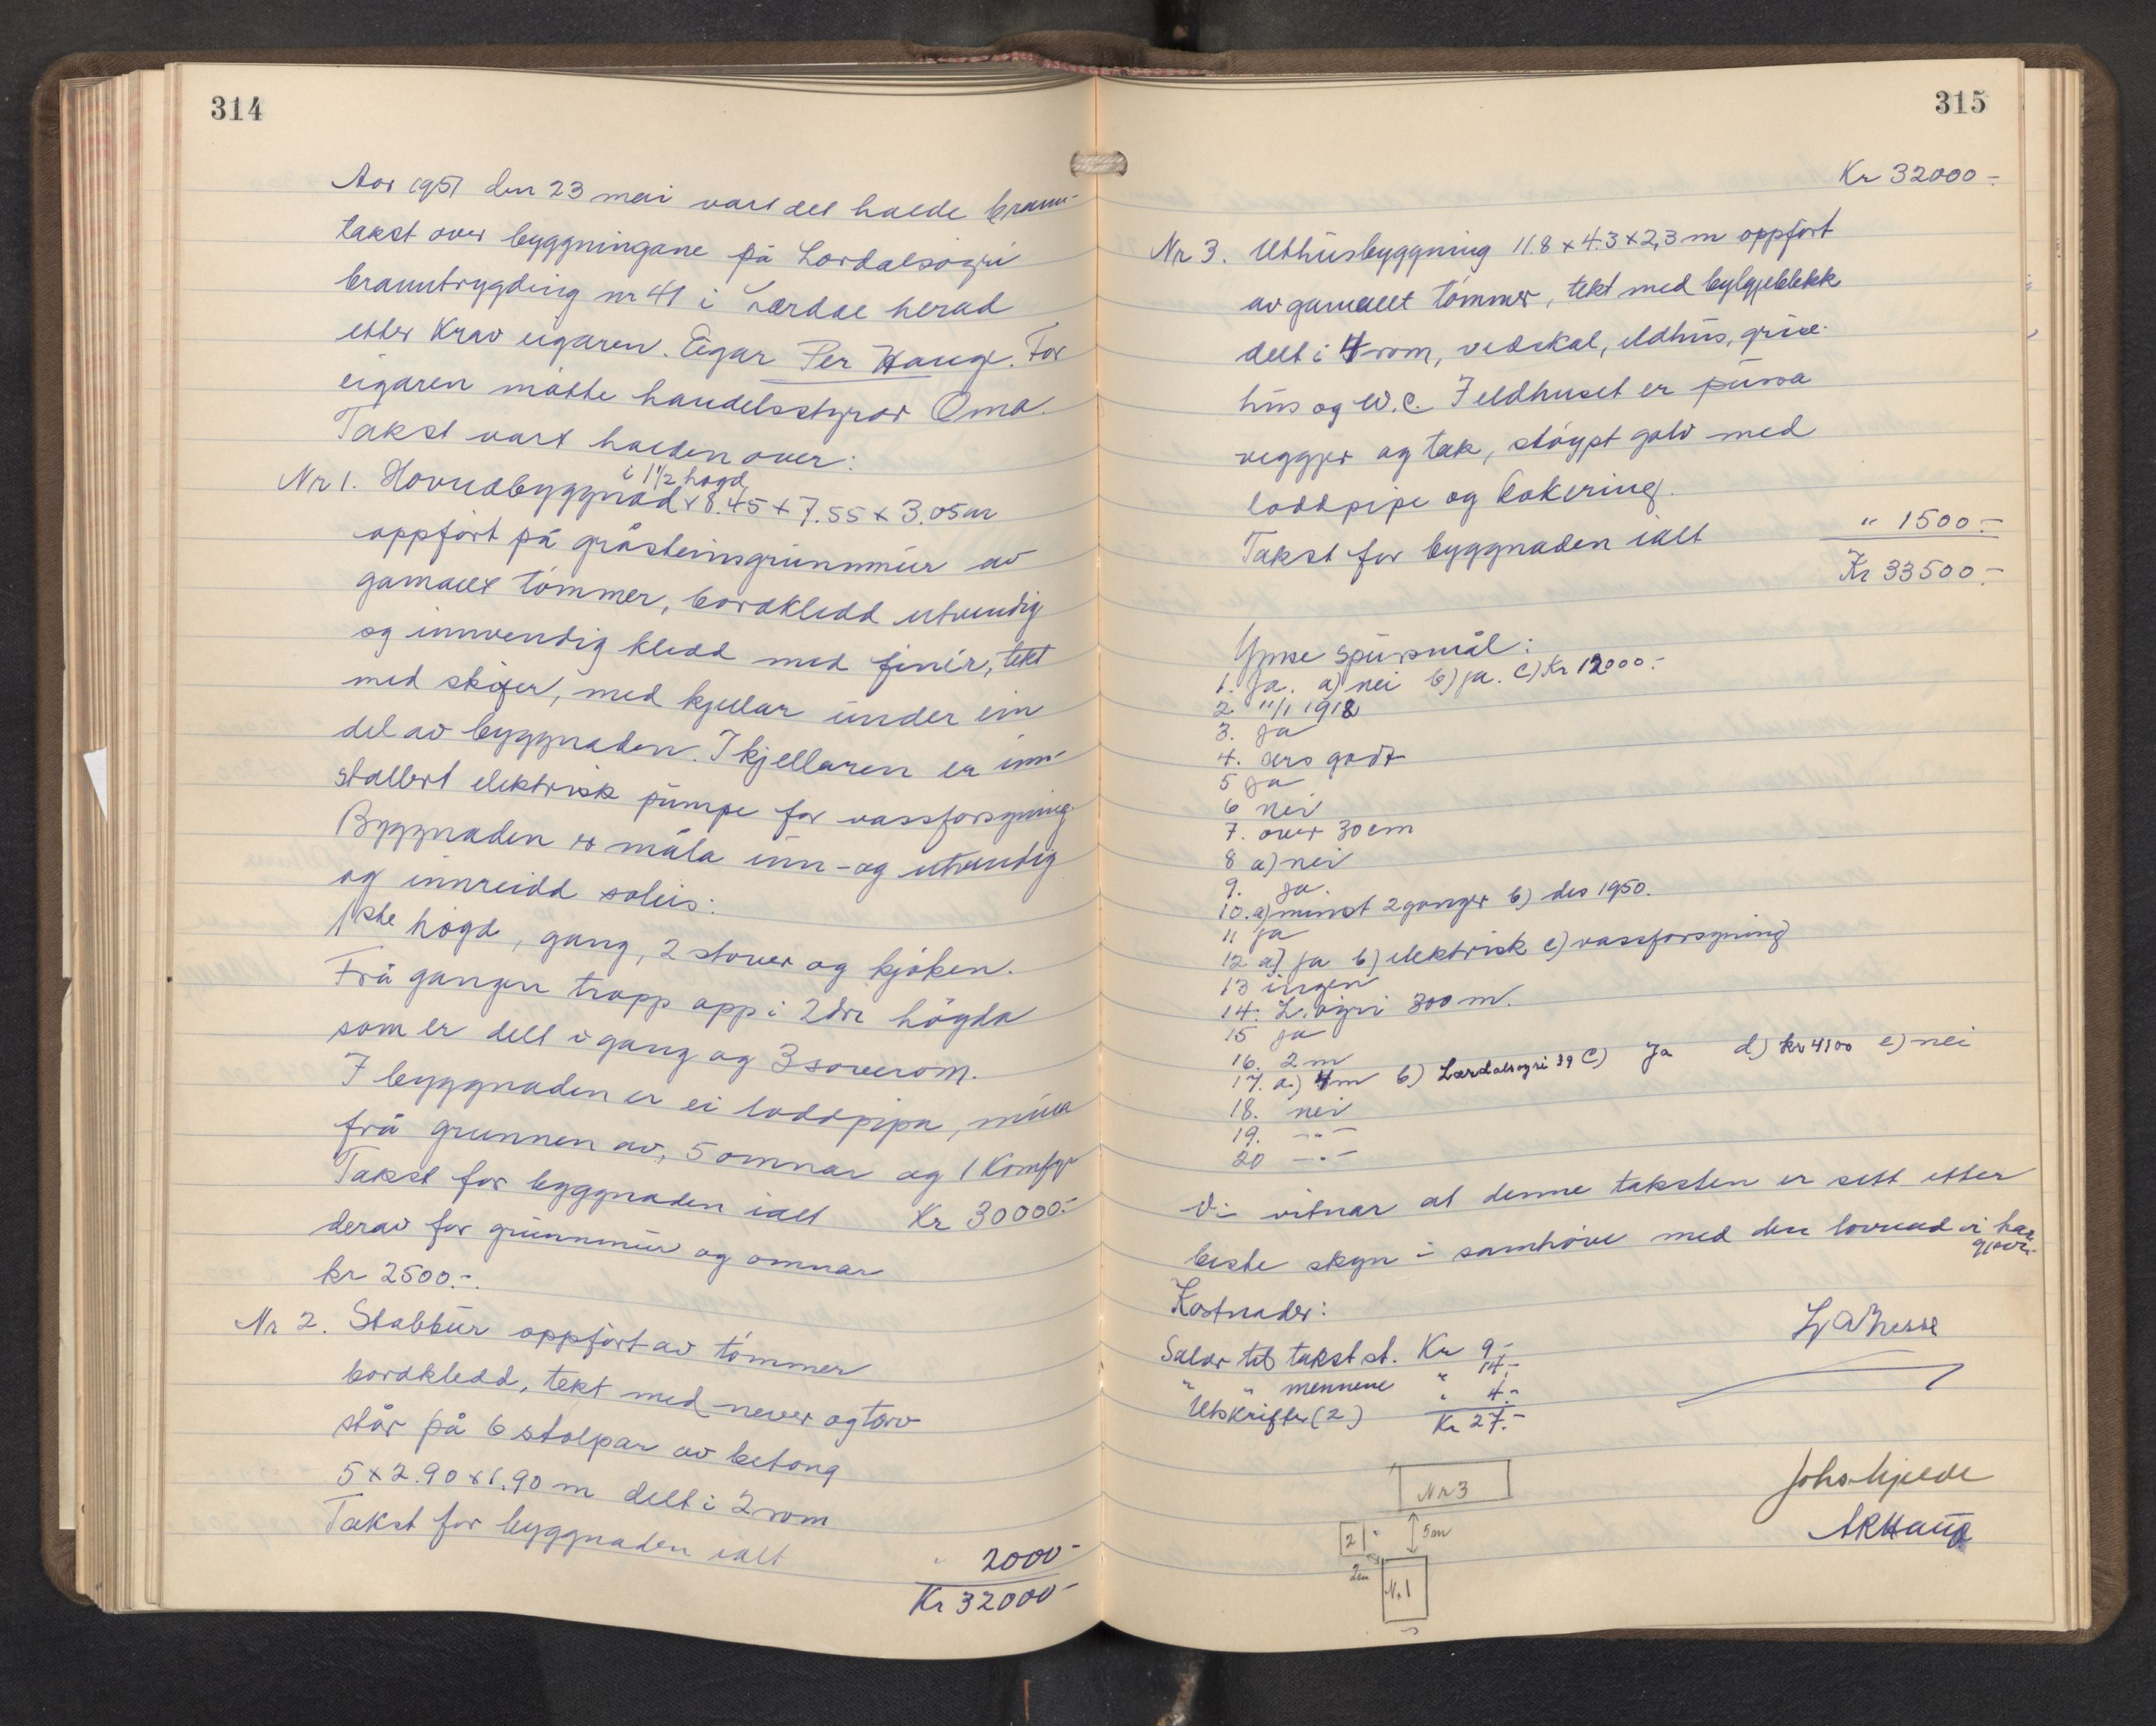 314
Aor 1951 den 23 mai vart det halde brann-
takst over byggningane på Lordalsøyri
branntrygding nr 41 i Lærdal herad
etter Krav eigaren. Eigar Per Haug. For
eigaren møtte handelsstyrar Oma.
Takst vart halden over:
i 1½ høgd
Nr 1. Hovudbyggnad x 8.45 x 7.55 x 3.05 m
oppført på gråsteinsgrunnmur av
gamalt tømmer, bordkledd utvendig
og innvendig kledd med finér, tekt
med skifer, med kjellar under ein
del av byggnaden. I kjellaren er inn-
stallert elektrisk pumpe for vassforsyning.
Byggnaden er måla inn- og utvendig
og innreidd soleis:
1ste høgd, gang, 2 stover og kjøken.
Frå gangen tropp opp i 2dre høgda
som er delt i gang og 3 soverom.
I byggnaden er ei loddpipa, mura
frå grunnen av, 5 omnar og 1 Komfyr
Takst for byggnaden ialt Kr 30000.-
derav for grunnmur og omnar
kr 2500.-
Nr 2. Stabbur oppført av tømmer
bordkledd, tekt med never og torv
står på 6 stolpar av betong
5 x 2.90 x 1.90 m delt i 2 rom
Takst for byggnaden ialt " 2000-
Kr 32000-
315
Kr 32000-
Nr 3. Uthusbyggning 11.8 x 4.3 x 2,3 m oppført
av gamalt tømmer, tekt med bylgjeblekk
delt i 4 rom, vedskal, eldhus, grise-
hus og W.C. I eldhuset er pussa
vegger og tak, støypt golv med
loddpipe og kokering.
Takst for byggnaden ialt " 1500.-
Kr 33500.-
Ymse spursmål:
1. Ja. a) nei b) ja. c) Kr 12000.-
2. 11/1 1918
3. Ja
4. sers godt
5 Ja
6 nei
7. over 30 cm
8 a) nei
9. Ja.
10. a) minst 2 ganger b) des 1950.
11 Ja
12 a) ja b) elektrisk c) vassforsyning
13 ingen
14. L.øyri 300 m.
15 ja
16. 2 m
17. a) 4 m b) Lærdalsøyri 39 c) Ja d) kr 4100 e) nei
18. nei
19. -"-
20 -"-
Vi vitnar at denne taksten er sett etter
beste skyn i samhøve med den lovnad vi har
gjeve.
Kostnader:
Salær til takst st. Kr 9.-
" " mennene " 14.-
Utskrifter (2) " 4.-
Kr 27.-
Nr 3
2
5 m
2 m
Nr. 1